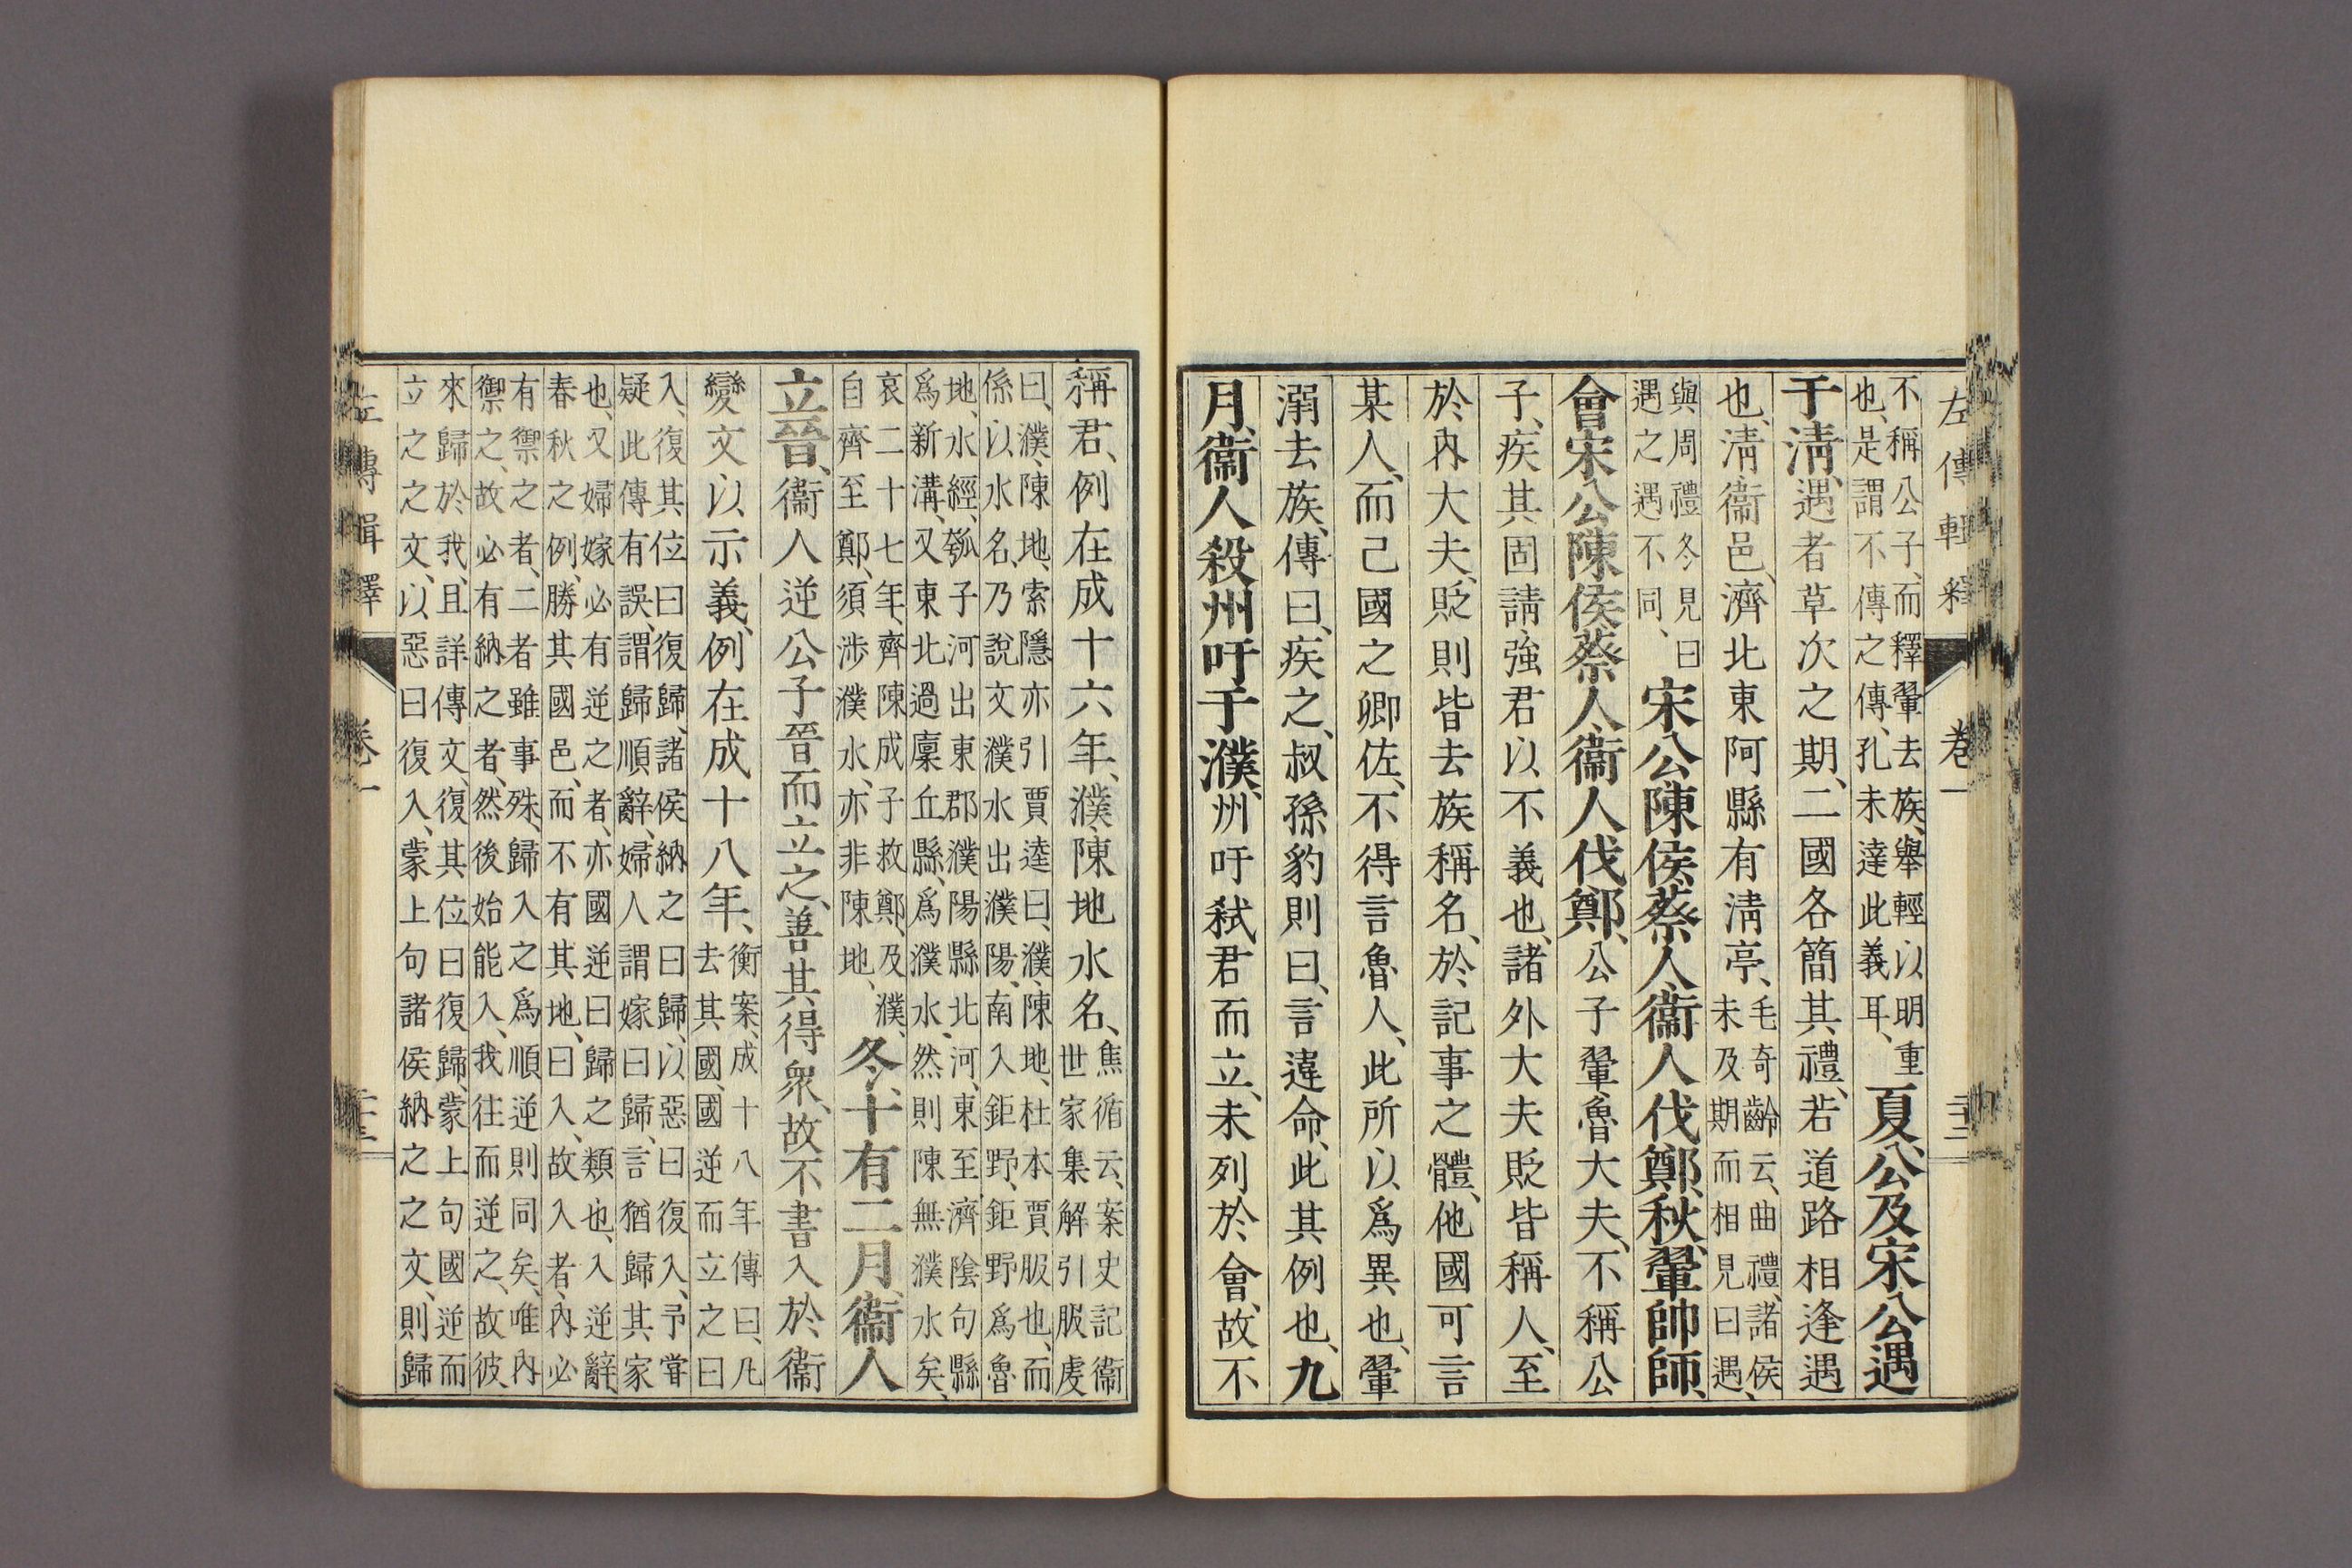 左傳輯釋 卷一
不稱公子、而釋翬去族、舉輕以明重
也、是謂不傳之傳、孔未達此義耳、
夏、公及宋公遇
于淸、遇者草次之期、二國各簡其禮、若道路相逢遇
也、淸、衞邑、濟北東阿縣有淸亭、
毛奇齡云、曲禮、諸侯
未及期而相見曰遇、
與周禮冬見曰
遇之遇不同、
宋公陳侯蔡人衞人伐鄭、秋、翬帥師、
會宋公陳侯蔡人衞人伐鄭、公子翬、魯大夫、不稱公
子、疾其固請強君以不義也、諸外大夫貶皆稱人、至
於內大夫、貶則皆去族稱名、於記事之體、他國可言
某人、而己國之卿佐、不得言魯人、此所以爲異也、翬
溺去族、傳曰、疾之、叔孫豹則曰、言違命、此其例也、九
月、衞人殺州吁于濮、州吁弒君而立、未列於會、故不
稱君、例在成十六年、濮、陳地水名、
焦循云、案史記衞
世家集解引服虔
曰、濮、陳地、索隱亦引賈逵曰、濮、陳地、杜本賈服也、而
係以水名、乃說文濮水出濮陽、南入鉅野、鉅野爲魯
地、水經、瓠子河出東郡濮陽縣北河、東至濟陰句縣
爲新溝、又東北過廩丘縣、爲濮水、然則陳無濮水矣、
哀二十七年、齊陳成子救鄭、及濮、
自齊至鄭、須涉濮水、亦非陳地、
冬、十有二月、衞人
立晉、衞人逆公子晉而立之、善其得衆、故不書入於衞
變文以示義、例在成十八年、
衡案、成十八年傳曰、凡
去其國、國逆而立之曰
入、復其位曰復歸、諸侯納之曰歸、以惡曰復入、予嘗
疑此傳有誤、謂歸順辭、婦人謂嫁曰歸、言猶歸其家
也、又婦嫁必有逆之者、亦國逆曰歸之類也、入逆辭、
春秋之例、勝其國邑、而不有其地、曰入、故入者、內必
有禦之者、二者雖事殊、歸入之爲順逆則同矣、唯內
禦之、故必有納之者、然後始能入、我往而逆之、故彼
來歸於我、且詳傳文、復其位曰復歸、蒙上句國逆而
立之之文、以惡曰復入、蒙上句諸侯納之之文、則歸
左傳輯釋 卷一